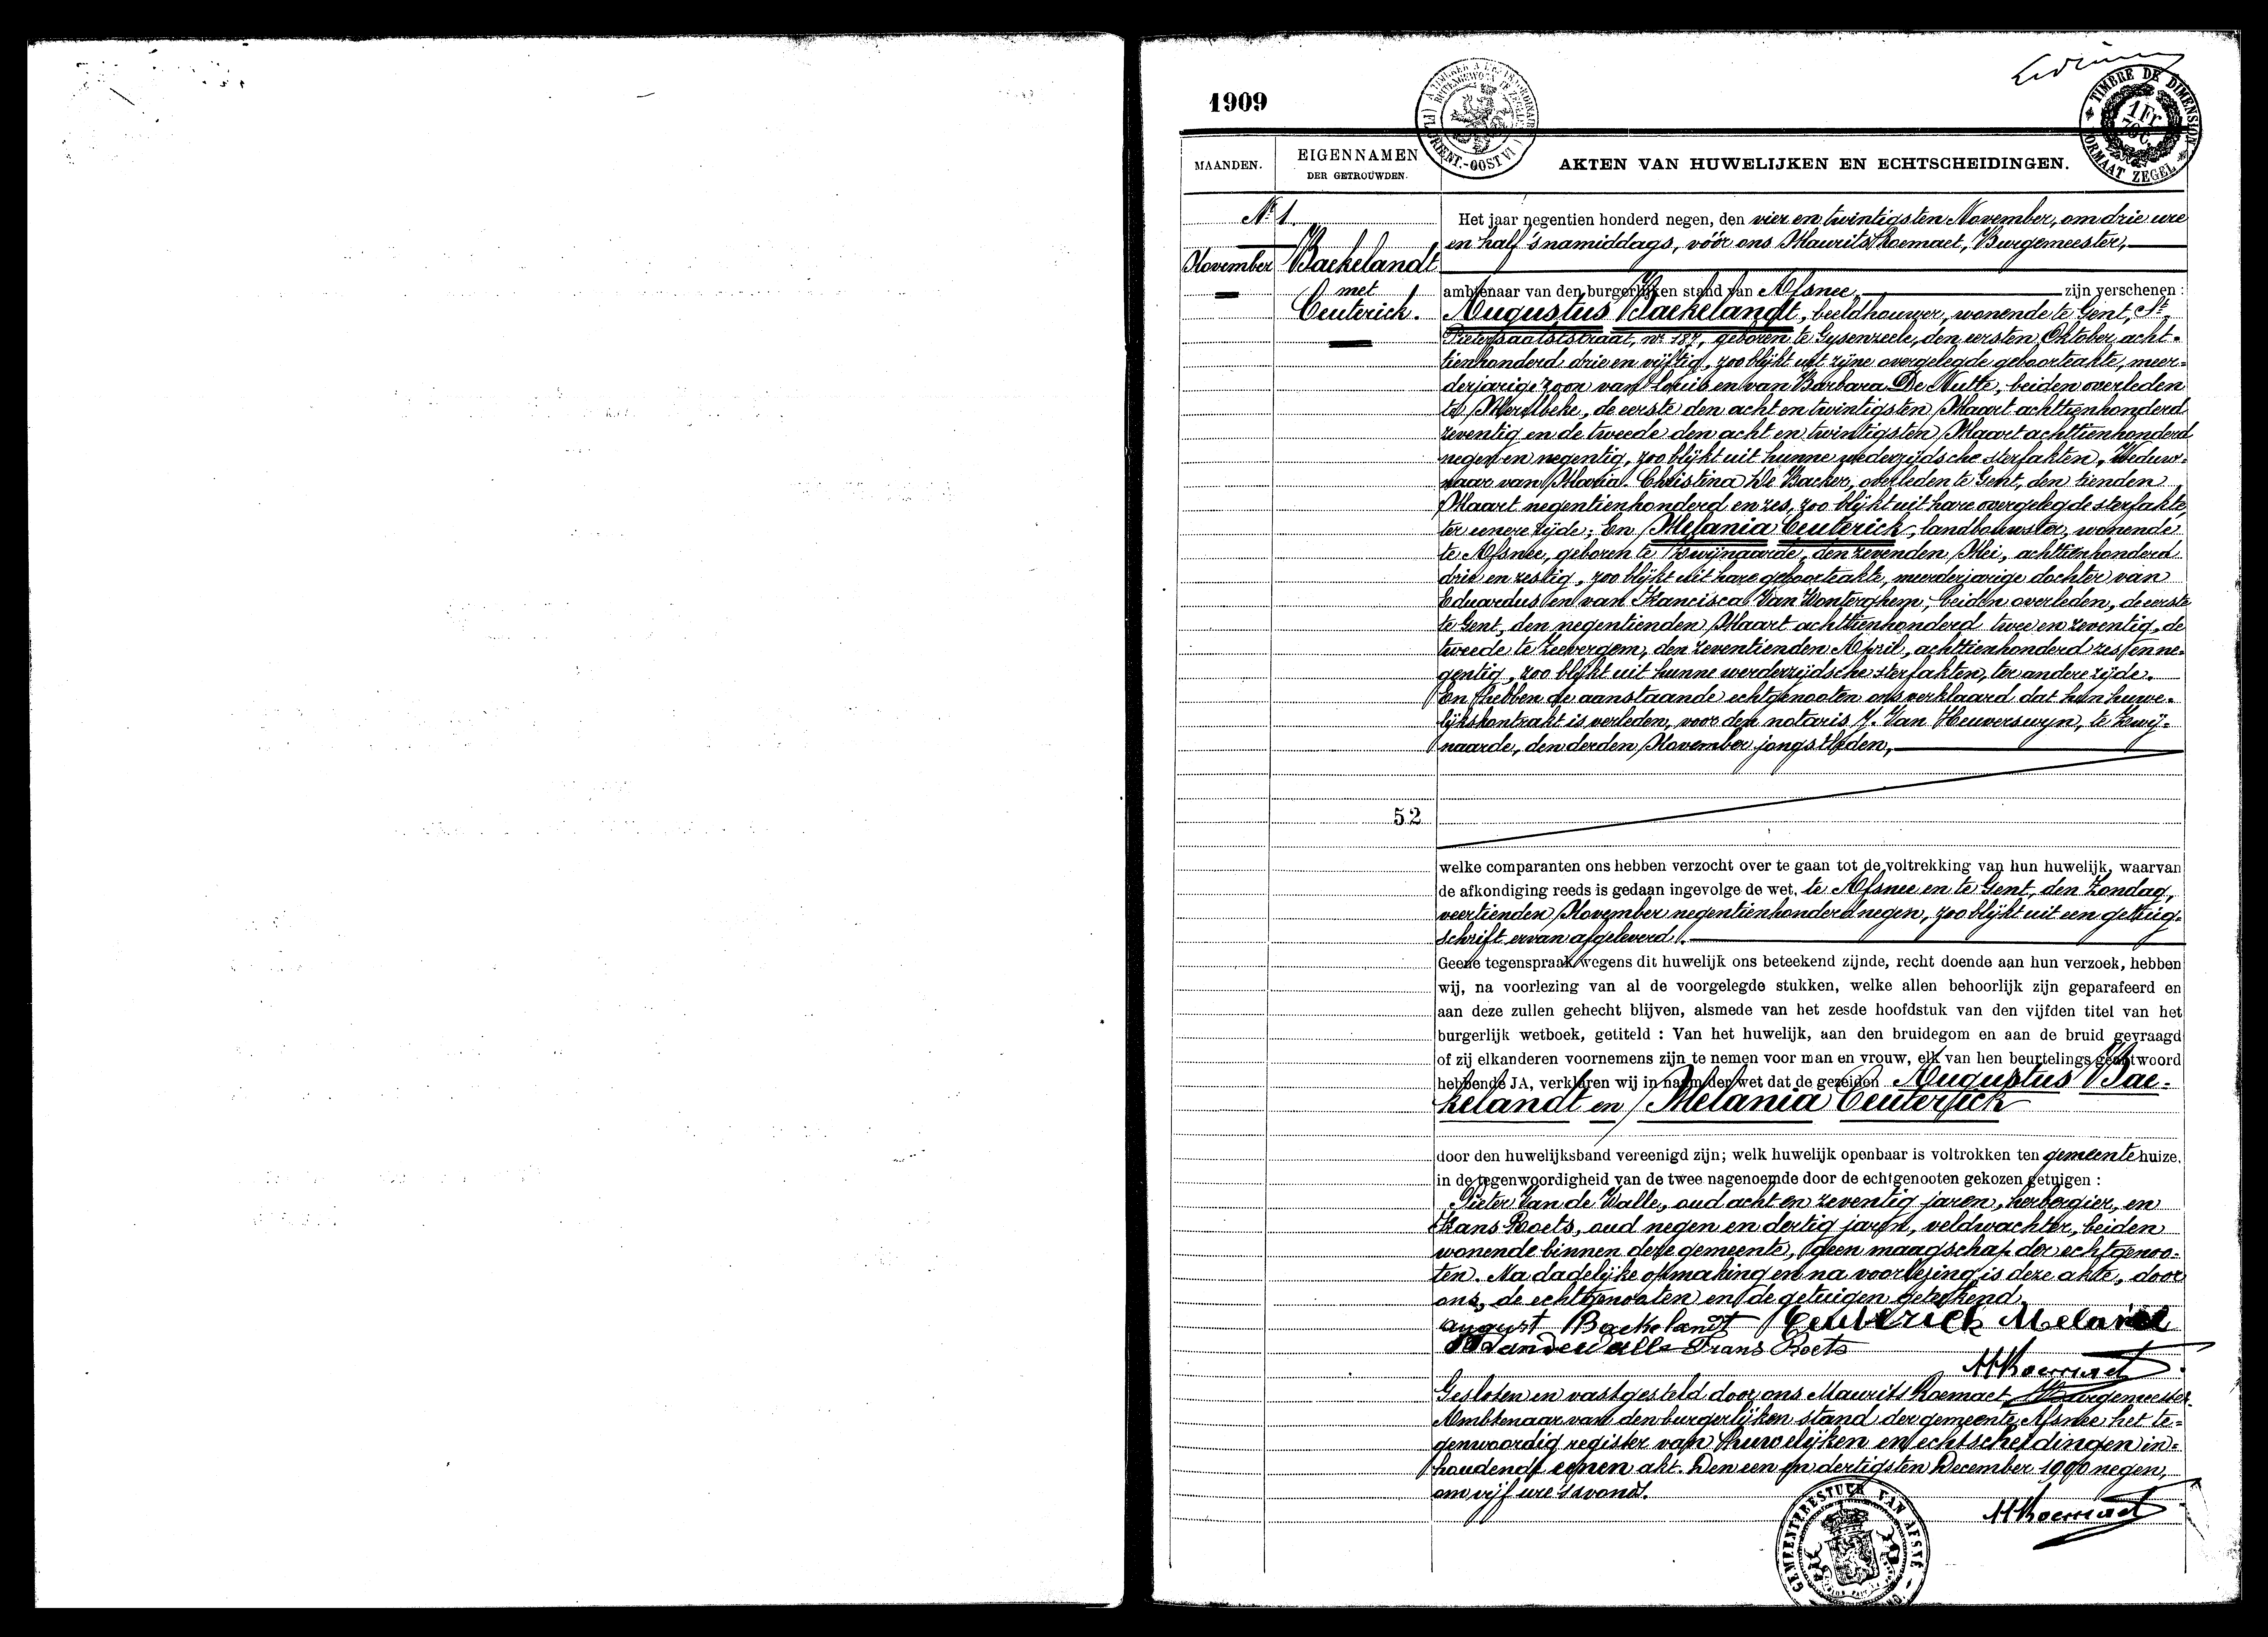 1909
TIMBRE DE DIMENSION
1 Fr
FORMAAT ZEGEL
MAANDEN.
EIGENNAMEN
DER GETROUWDEN.
AKTEN VAN HUWELIJKEN EN ECHTSCHEIDINGEN.
Nr 1
November
Backelandt
met
Ceuterick.
52
Het jaar negentien honderd negen, den vier en twintigsten November, om drie ure
en half 's namiddags, vóór ons Maurits Roemaet, Burgemeester,
ambtenaar van den burgerlijken stand van Afsnee, zijn verschenen :
Augustus Backelandt, beeldhouwer, wonende te Gent, St.
Pietersaalststraat, nr 187, geboren te Gysenzeele, den eersten Oktober, acht-
tienhonderd drie en vijftig, zoo blijkt uit zijne overgelegde geboorteakte, meer-
derjarige zoon van Louis en van Barbara De Nutte, beiden overleden
te Merelbeke, de eerste den acht en twintigsten Maart achttienhonderd
zeventig en de tweede den acht en twintigsten Maart achttienhonderd
negen en negentig, zoo blijkt uit hunne wederzijdsche sterfakten, Weduw-
naar van Maria Christina De Backer, overleden te Gent, den tienden
Maart negentienhonderd en zes, zoo blijkt uit hare overgelegde sterfakte,
ter eenere zijde; En Melania Ceuterick, landbouwster, wonende
te Afsnee, geboren te Zwijnaarde, den zevenden Mei, achttienhonderd
drie en zestig, zoo blijkt uit hare geboorteakte, meerderjarige dochter van
Eduardus en van Francisca Van Wonterghem, beiden overleden, de eerste
te Gent, den negentienden Maart achttienhonderd twee en zeventig, de
tweede te Zeevergem, den zeventienden April, achttienhonderd zes en ne-
gentig, zoo blijkt uit hunne werderzijdsche sterfakten, ter andere zijde.
En hebben de aanstaande echtgenooten ons verklaard dat hun huwe-
lijkskontrakt is verleden, voor den notaris Van Heuverswyn, te Zwij-
naarde, den derden November jongstleden,
welke comparanten ons hebben verzocht over te gaan tot de voltrekking van hun huwelijk, waarvan
de afkondiging reeds is gedaan ingevolge de wet, te Afsnee en te Gent, den Zondag,
veertienden November negentienhonderd negen, zoo blijkt uit een getuig-
schrift ervan afgeleverd.
Geene tegenspraak wegens dit huwelijk ons beteekend zijnde, recht doende aan hun verzoek, hebben
wij, na voorlezing van al de voorgelegde stukken, welke allen behoorlijk zijn geparafeerd en
aan deze zullen gehecht blijven, alsmede van het zesde hoofdstuk van den vijfden titel van het
burgerlijk wetboek, getiteld : Van het huwelijk, aan den bruidegom en aan de bruid gevraagd
of zij elkanderen voornemens zijn te nemen voor man en vrouw, elk van hen beurtelings geantwoord
hebbende JA, verklaren wij in naam der wet dat de gezeiden Augustus Bac-
kelandt en Melania Ceuterick
door den huwelijksband vereenigd zijn; welk huwelijk openbaar is voltrokken ten gemeentehuize,
in de tegenwoordigheid van de twee nagenoemde door de echtgenooten gekozen getuigen :
Pieter Van de Walle, oud acht en zeventig jaren, herbergier, en
Frans Roets, oud negen en dertig jaren, veldwachter, beiden
wonende binnen deze gemeente, geen maagschap der echtgenoo-
ten. Na dadelijke opmaking en na voorlezing is deze akte, door
ons, de echtgenooten en de getuigen geteekend.
august Backelandt Ceuterick Melanie
Vandewalle Frans Roets
M Roemaet
Gesloten en vastgesteld door ons Maurits Roemaet Burgemeester
Ambtenaar van den burgerlijken stand der gemeente Afsnee het te-
genwoordig register van huwelijken en echtscheidingen in-
houdende eenen akt. Den een en dertigsten December 1900 negen,
om vijf ure 's avonds.
M Roemaet
GEMEENTEBESTUUR VAN AFSNÉ